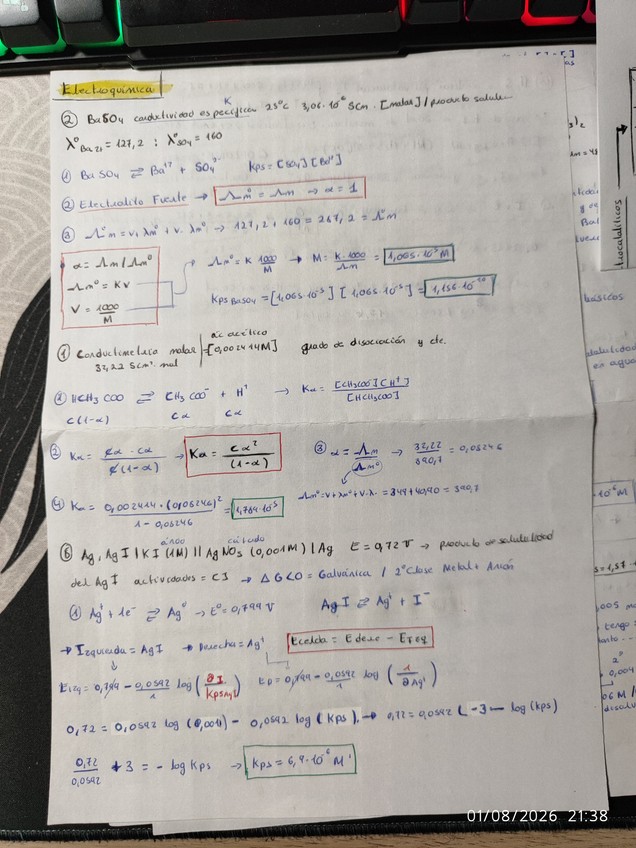 Electroquímica
② BaSO4 conductividad específica K 25ºC 3,06·10⁻⁶ Scm. [molar] / producto solub
λ°Ba2+ = 127,2 ; λ°SO4 = 160
① BaSO4 ⇌ Ba²⁺ + SO4²⁻ Kps = [SO4][Ba²⁺]
② Electrolito Fuerte → Λm° = Λm → α = 1
③ Λ°m = V+ λm° + V- λm° → 127,2 + 160 = 287,2 = Λ°m
α = Λm / Λm°
Λm° = KV
V = 1000/M
Λm° = K 1000/M → M = K·1000/Λm = 1,065·10⁻⁵ M
Kps BaSO4 = [1,065·10⁻⁵] [1,065·10⁻⁵] = 1,136·10⁻¹⁰
① Conductimetría molar ác acético [0,002414M] grado de disociación y cte.
32,22 Scm². mol
① HCH3COO ⇌ CH3COO⁻ + H⁺ → Ka = [CH3COO][H⁺] / [HCH3COO]
c(1-α) cα cα
② Ka = cα·cα / c(1-α) → Ka = cα² / (1-α)
③ α = Λm / Λm° → 32,22 / 390,7 = 0,08246
Λm° = V+ λm⁺ + V- λ- = 349 + 40,90 = 390,7
④ Ka = 0,002414·(0,08246)² / 1-0,08246 = 1,789·10⁻⁵
ánodo cátodo
⑥ Ag, AgI | KI (1M) || AgNO3 (0,001M) | Ag E = 0,72 V → producto de solubilidad
del AgI actividades = [] → ΔG<0 = Galvánica / 2º Clase Metal + Anión
① Ag⁺ + 1e⁻ ⇌ Ag° → E° = 0,799 V AgI ⇌ Ag⁺ + I⁻
→ Izquierda = AgI → Derecha = Ag⁺ Ecelda = Edere - Eizq
Eizq = 0,799 - 0,0592/1 log (aI / KpsAgI) Ep = 0,799 - 0,0592/1 log (1 / aAg⁺)
0,72 = 0,0592 log (0,001) - 0,0592 log (Kps) → 0,72 = 0,0592 (-3 - log (kps)
0,72 / 0,0592 + 3 = - log Kps → Kps = 6,9·10⁻¹⁶ M
01/08/2026 21:38